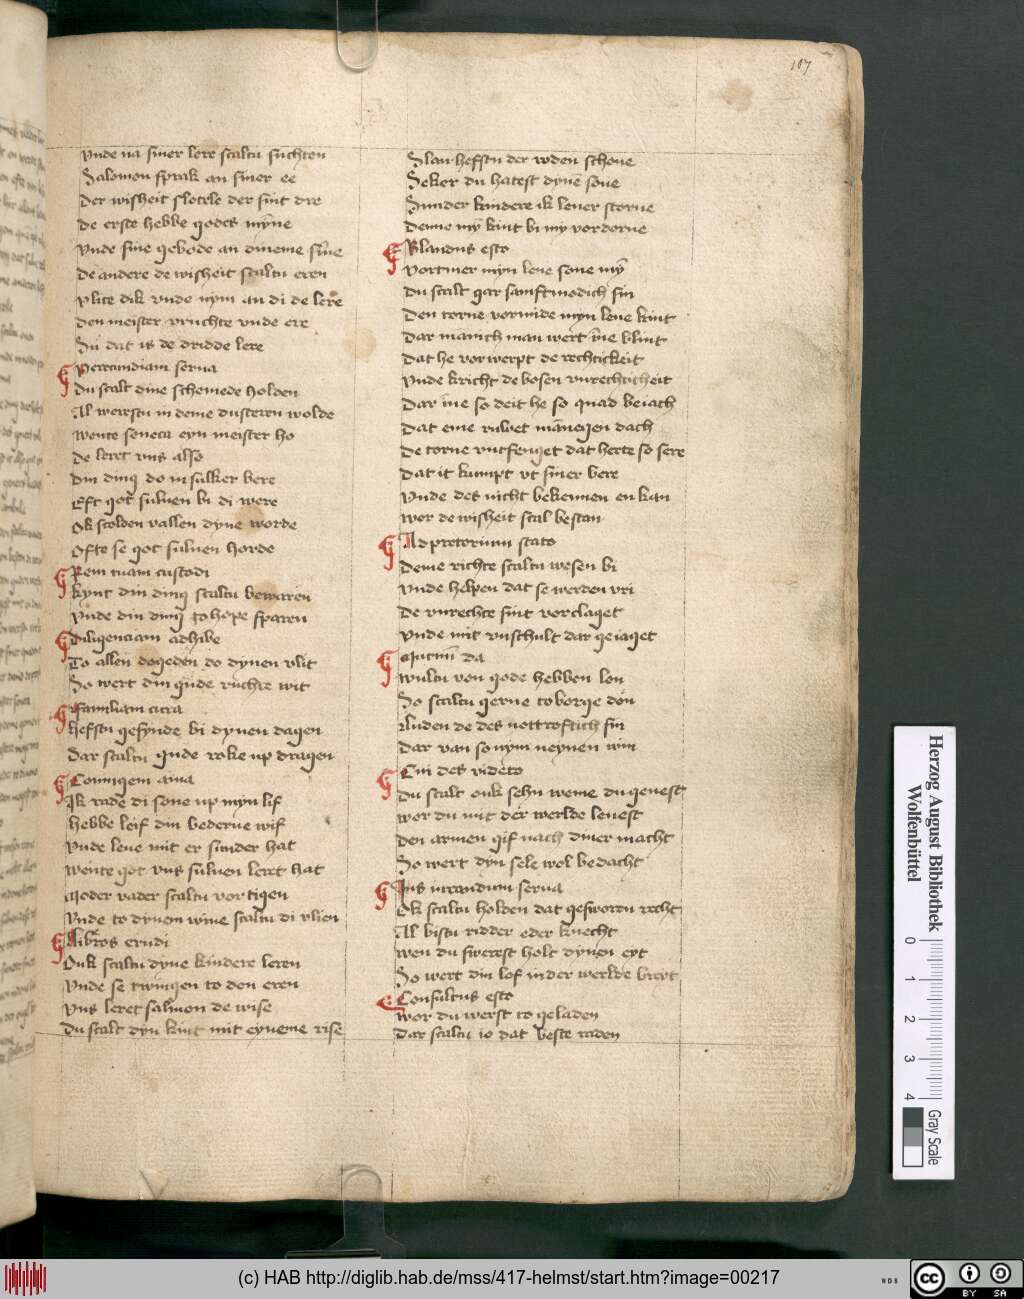 107
vnde na siner lere scaltu suchten
Salomon sprak an siner ee
Der wisheit slotele der sint dre
De erste hebbe godes mȳne
vnde sine gebode an dineme sīne
De andere de wisheit scaltu eren
vlite dik vnde nym an di de lere
Den meister vruchte vnde ere
Su dat is de dridde lere
Verecundiam serua
Du scalt dine schemede holden
Al werstu in deme dusteren wolde
wente seneca eyn meister ho
de leret vns also
Din dinq do in sulker bere
Eft got suluen bi di were
Ok scolden vallen dyne worde
Ofte se got suluen horde
Rem tuam custodi
kynt din dinq scaltu bewaren
vnde din dinq to hope sparen
Diligenciam adhibe
To allen dogeden do dynen vlit
So wert din gude ruchte wit
Familiam cura
hefstu gesynde bi dynen dagen
Dar scaltu gude roke up dragen
Coniugem ama
Ik rade di sone up myn lif
hebbe leif din bederue wif
vnde leue mit er sunder hat
wente got vns suluen leret hat
Moder vader scaltu vortigen
vnde to dynem wiue scaltu di vlien
Libros erudi
Ouk scaltu dyne kindere leren
vnde se twingen to den eren
vns leret salmon de wise
Du scalt dyn kint mit eyneme rise
Slan hefstu der roden schone
Seker du hatest dynē sone
Sunder kindere ik leuer storue
Denne my kint bi my vordorue
Blandus esto
vortmer myn leue sone my
Du scalt gar sanftmodich sin
Den torne vormide myn leue kint
Dar mānich man wert īne blint
Dat he vorwerpt de rechticheit
vnde kricht de bosen vnrechticheit
Dar īne so deit he so quad beiach
Dat eme ruwet mānegen dach
De torne vntfenget dat herte so sere
Dat it kumpt vt siner bere
vnde des nicht bekennen en kan
wor de wisheit scal bestan
Ad pretorium stato
Deme richte scaltu wesen bi
vnde helpen dat se werden vri
De vnrechte sint vorclaget
vnde mit vnschult dar geiaget
Mutuū da
wultu von gode hebben lon
So scaltu gerne to borge don
Luden de des nottroftich sin
Dar van so nym neynen win
Cui des videto
Du scalt ouk sehn weme du geuest
wor du mit der werlde leuest
Den armen gif nach diner macht
So wert dyn sele wol bedacht
Ius iurandum serua
Ok scaltu holden dat gesworen recht
Al bistu ridder eder knecht
wen du swerest holt dynen eyt
So wert din lof in der werlde breyt
Consultus esto
wor du werst to geladen
Dar scaltu io dat beste raden
Herzog August Bibliothek
Wolfenbüttel
0 1 2 3 4
Gray Scale
(c) HAB http://diglib.hab.de/mss/417-helmst/start.htm?image=00217
WDB
cc BY SA